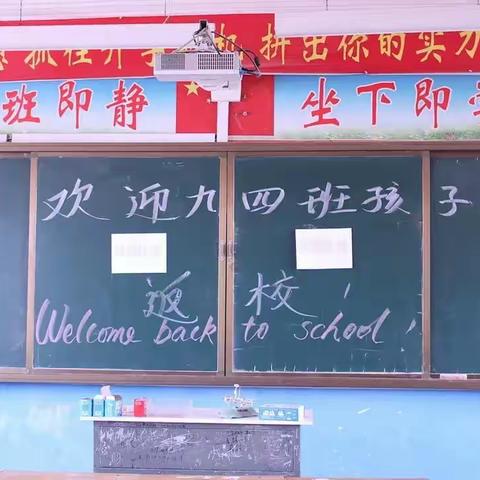 抓住升学 机 拼出你的实力
班即静 坐下即学
欢迎九四班孩子
返校！
Welcome back to school！